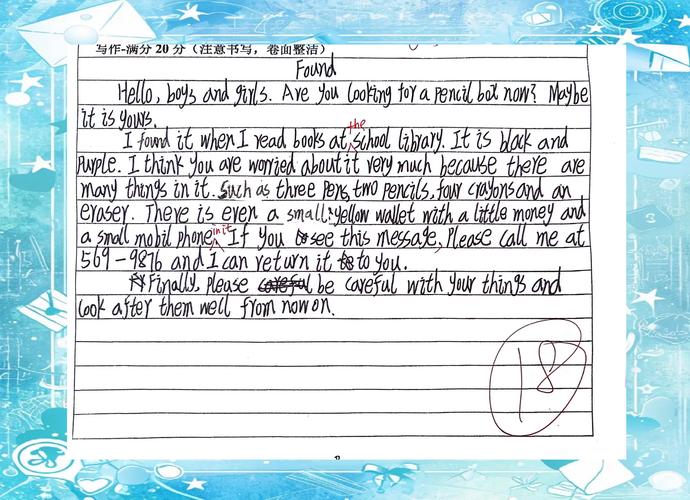 写作-满分 20 分（注意书写，卷面整洁）
Found
Hello, boys and girls. Are you looking for a pencil box now? Maybe
it is yours.
the
I found it when I read books at school library. It is black and
purple. I think you are worried about it very much because there are
many things in it. Such as three pens, two pencils, four crayons and an
eraser. There is even a small yellow wallet with a little money and
in it
a small mobil phone. If you see this message, Please call me at
569-9876 and I can return it to you.
Finally, please be careful with your things and
look after them well from now on.
18